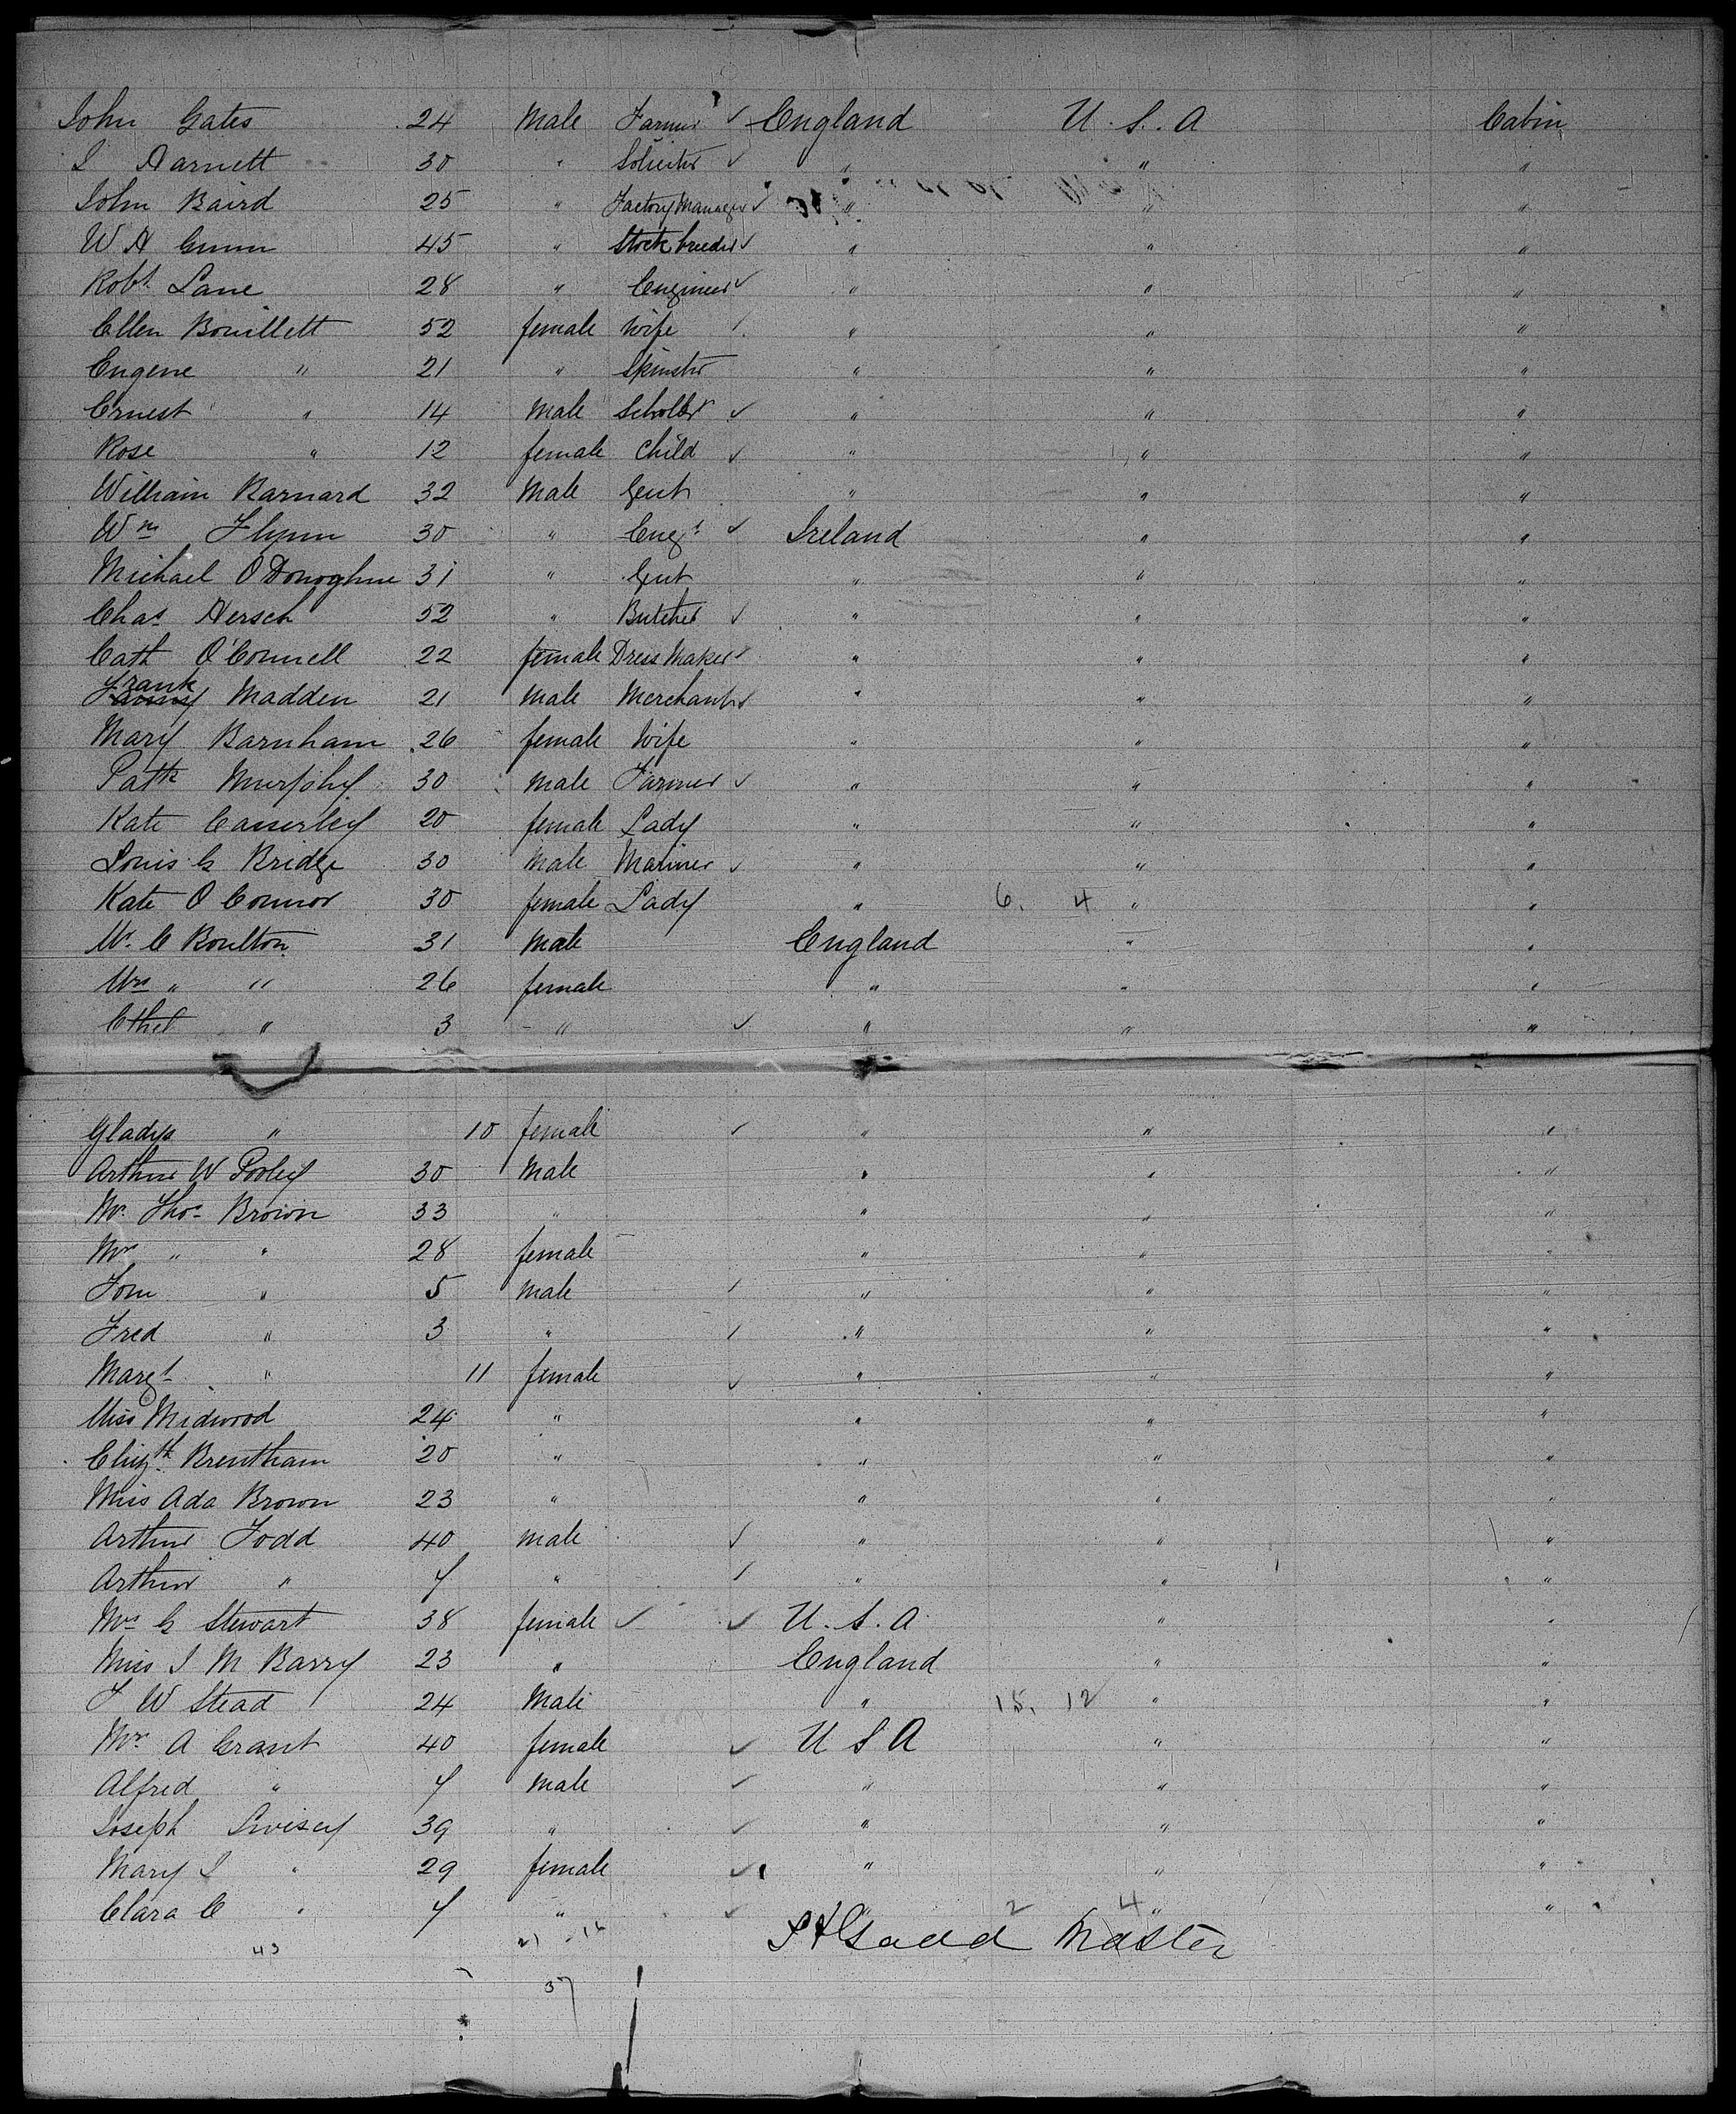 John Gates 24 Male Farmer ✓ England U.S.A Cabin
J Harnett 30 " Solicitor ✓ " " "
John Baird 25 " Factory Manager ✓ " " "
W H Gunn 45 " Stock breeder ✓ " " "
Robt Lane 28 " Engineer ✓ " " "
Ellen Bouillett 52 female Wife ✓ " " "
Eugene " 21 " Spinster " " "
Ernest " 14 Male Scholar ✓ " " "
Rose " 12 female Child ✓ " " "
William Barnard 32 Male Gent " " "
Wm Flynn 30 " Engr ✓ Ireland " "
Michael O'Donoghue 31 " Gent " " "
Chas Hersch 52 " Butcher ✓ " " "
Cath O'Connell 22 female Dress Maker ✓ " " "
Frank Madden 21 male Merchant ✓ " " "
Mary Barnham 26 female Wife " " "
Patk Murphy 30 male Farmer ✓ " " "
Kate Casserley 20 female Lady " " "
Louis G Bridge 30 Male Mariner ✓ " " "
Kate O Connor 30 female Lady " 6. 4 " "
Mr C Boulton 31 Male England " "
Mrs " " 26 female " " "
Ethel " 3 " ✓ " " "
Gladys " 10 female ✓ " " "
Arthur W Pooley 30 Male " " "
Mr Thos Brown 33 " " " "
Mrs " " 28 female " " "
Tom " 5 Male ✓ " " "
Fred " 3 " ✓ " " "
Margt " 11 female ✓ " " "
Miss Midwood 24 " " " "
Elizth Brentham 20 " " " "
Miss Ada Brown 23 " " " "
Arthur Todd 40 male ✓ " " "
Arthur " 7 " ✓ " " "
Mrs G Stewart 38 female ✓ ✓ U.S.A. " "
Miss J M Barry 23 " England " "
T W Stead 24 Male " 15. 12 " "
Mrs A Grant 40 female ✓ U S A " "
Alfred " 7 Male ✓ " " "
Joseph Livisey 39 " ✓ " " "
Mary J " 29 female ✓ " " "
Clara C " 7 " ✓ " 2 4 " "
43 21 - 16 Gadd Master
37